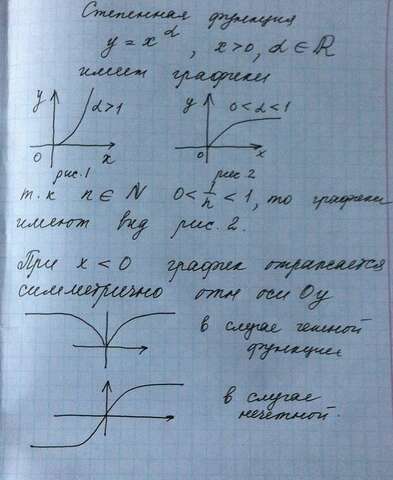 Степенная функция
y = x^α, x>0, α ∈ ℝ
имеет графики
y α>1
0 x
рис.1
y 0<α<1
0 x
рис 2
т.к n ∈ N 0 < 1/n < 1, то графики
имеют вид рис. 2.
При x < 0 график отражается
симметрично отн оси Oy
в случае четной
функции
в случае
нечетной.